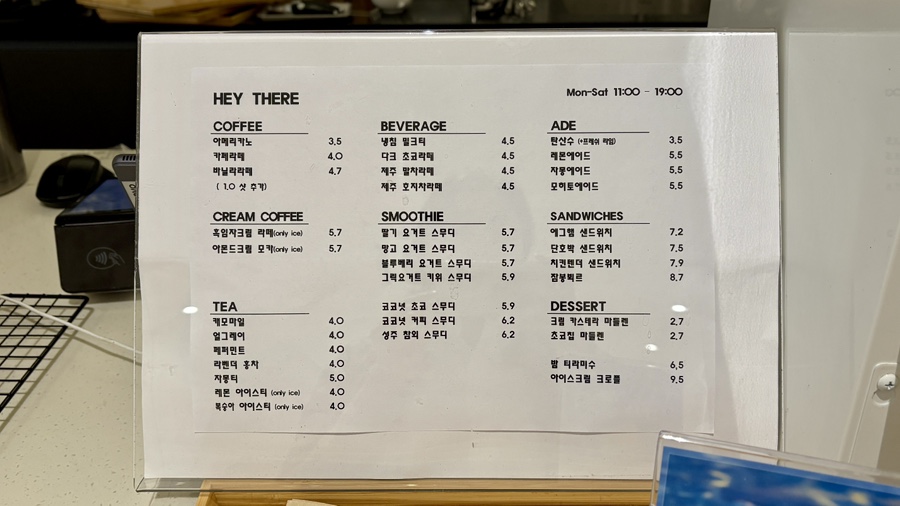 HEY THERE
Mon-Sat 11:00 - 19:00
COFFEE
아메리카노 3,5
카페라떼 4,0
바닐라라떼 4,7
( 1,0 샷 추가)
CREAM COFFEE
흑임자크림 라떼(only ice) 5,7
아몬드크림 모카(only ice) 5,7
TEA
캐모마일 4,0
얼그레이 4,0
페퍼민트 4,0
라벤더 홍차 4,0
자몽티 5,0
레몬 아이스티 (only ice) 4,0
복숭아 아이스티 (only ice) 4,0
BEVERAGE
냉침 밀크티 4,5
다크 초코라떼 4,5
제주 말차라떼 4,5
제주 호지차라떼 4,5
SMOOTHIE
딸기 요거트 스무디 5,7
망고 요거트 스무디 5,7
블루베리 요거트 스무디 5,7
그릭요거트 키위 스무디 5,9
코코넛 초코 스무디 5,9
코코넛 커피 스무디 6,2
성주 참외 스무디 6,2
ADE
탄산수 (+프레쉬 라임) 3,5
레몬에이드 5,5
자몽에이드 5,5
모히토에이드 5,5
SANDWICHES
에그햄 샌드위치 7,2
단호박 샌드위치 7,5
치킨텐더 샌드위치 7,9
잠봉뵈르 8,7
DESSERT
크림 카스테라 마들렌 2,7
초코칩 마들렌 2,7
밤 티라미수 6,5
아이스크림 크로플 9,5